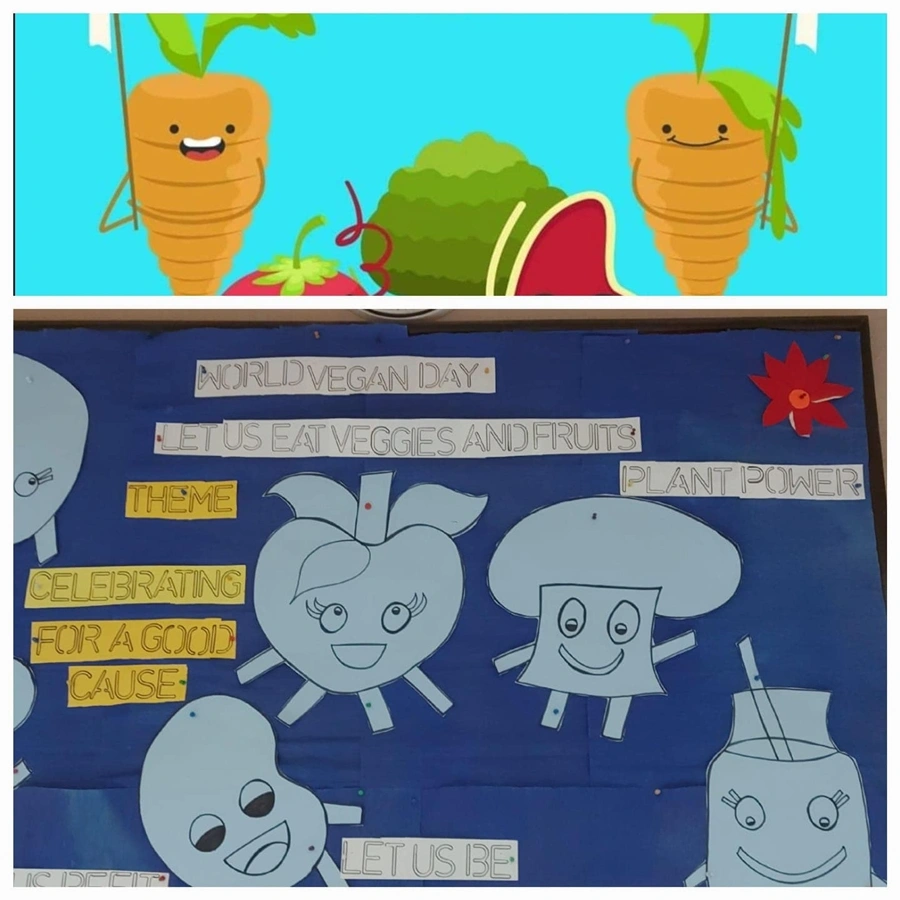 WORLD VEGAN DAY
LET US EAT VEGGIES AND FRUITS
PLANT POWER
THEME
CELEBRATING
FOR A GOOD
CAUSE
LET US BE
US BE FIT